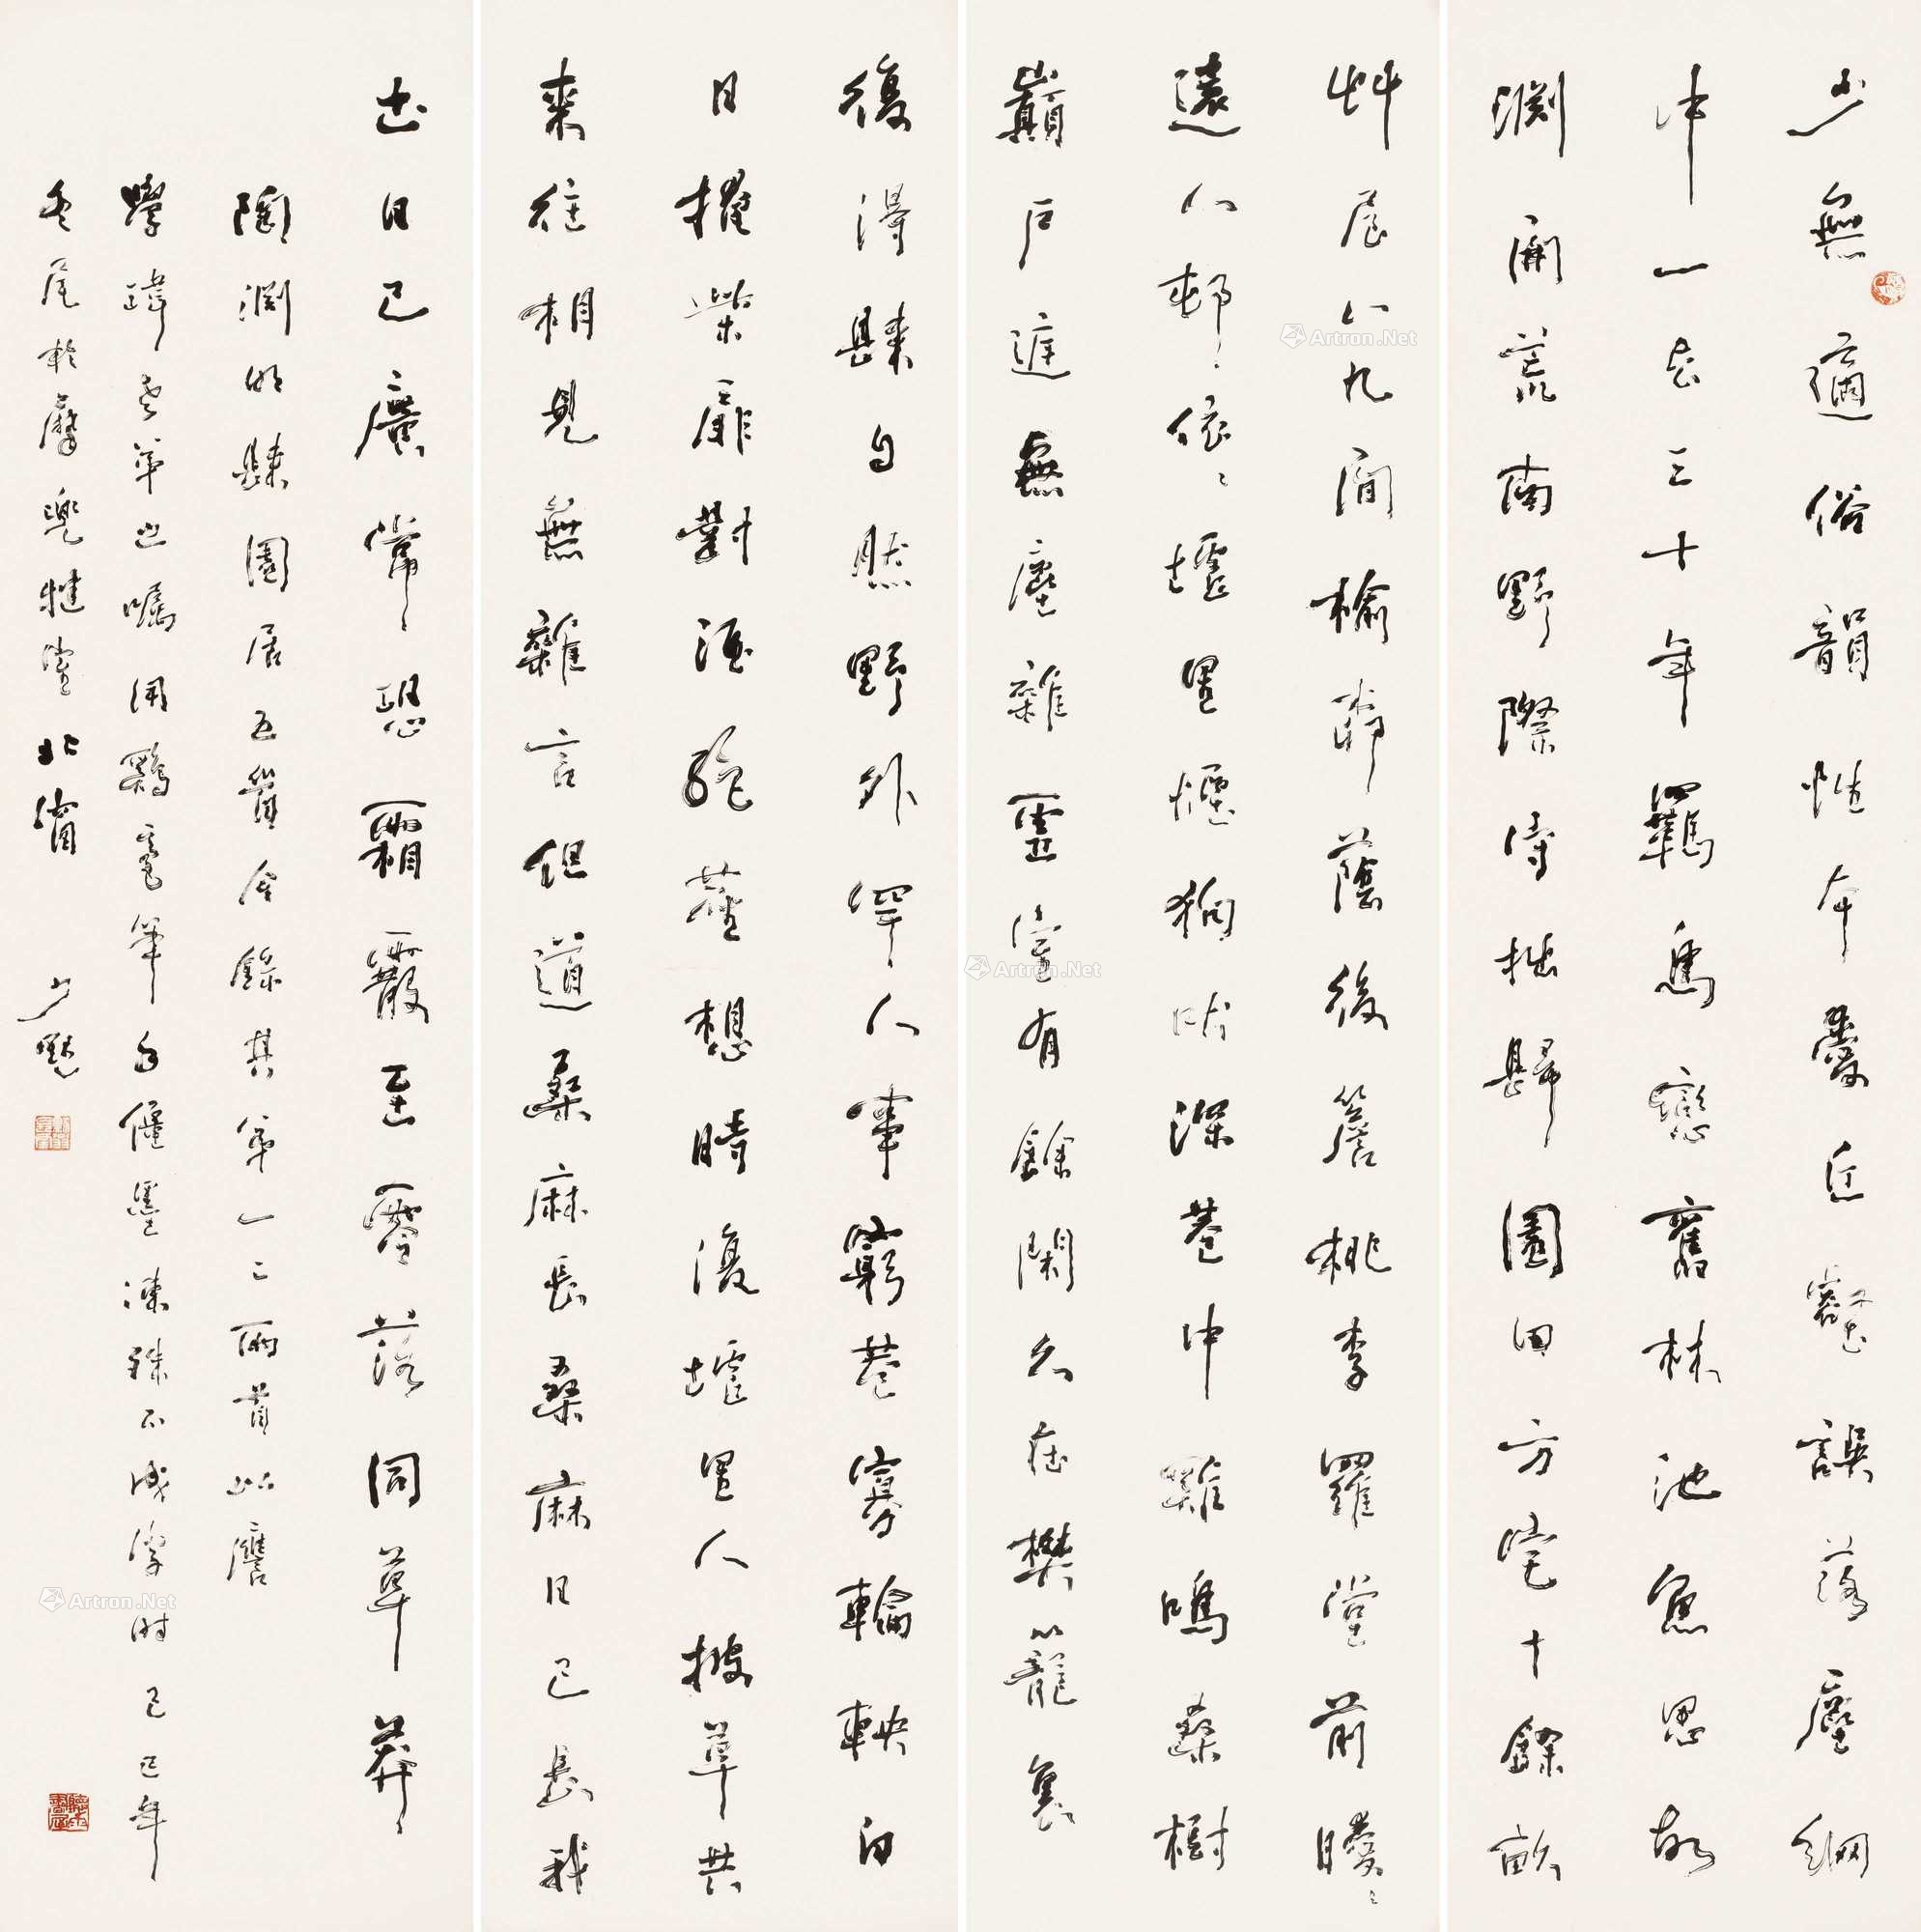 少無適俗韻性本愛丘壑誤落塵網
中一去三十年羈鳥戀舊林池魚思故
淵開荒南野際守拙歸園田方宅十餘畝
艸屋八九間榆柳蔭後簷桃李羅堂前曖〻
遠人邨依〻墟里煙狗吠深巷中雞鳴桑樹
巔戶庭無塵雜靈室有餘閒久在樊籠裏
復得歸自然野外罕人事窮巷寡輪鞅白
日掩柴扉對酒絕塵想時復墟里人披草共
來往相見無雜言但道桑麻長桑麻日已長我
土日已廣常恐霜霰至零落同草莽
陶淵明歸園居五首今錄其第一二兩首以應
學暐老弟之囑用雞毫筆白僵墨凍殊不成字時己巳年
冬尾於摩兜鞬室北窗 少默
Artron.Net
Artron.Net
Artron.Net